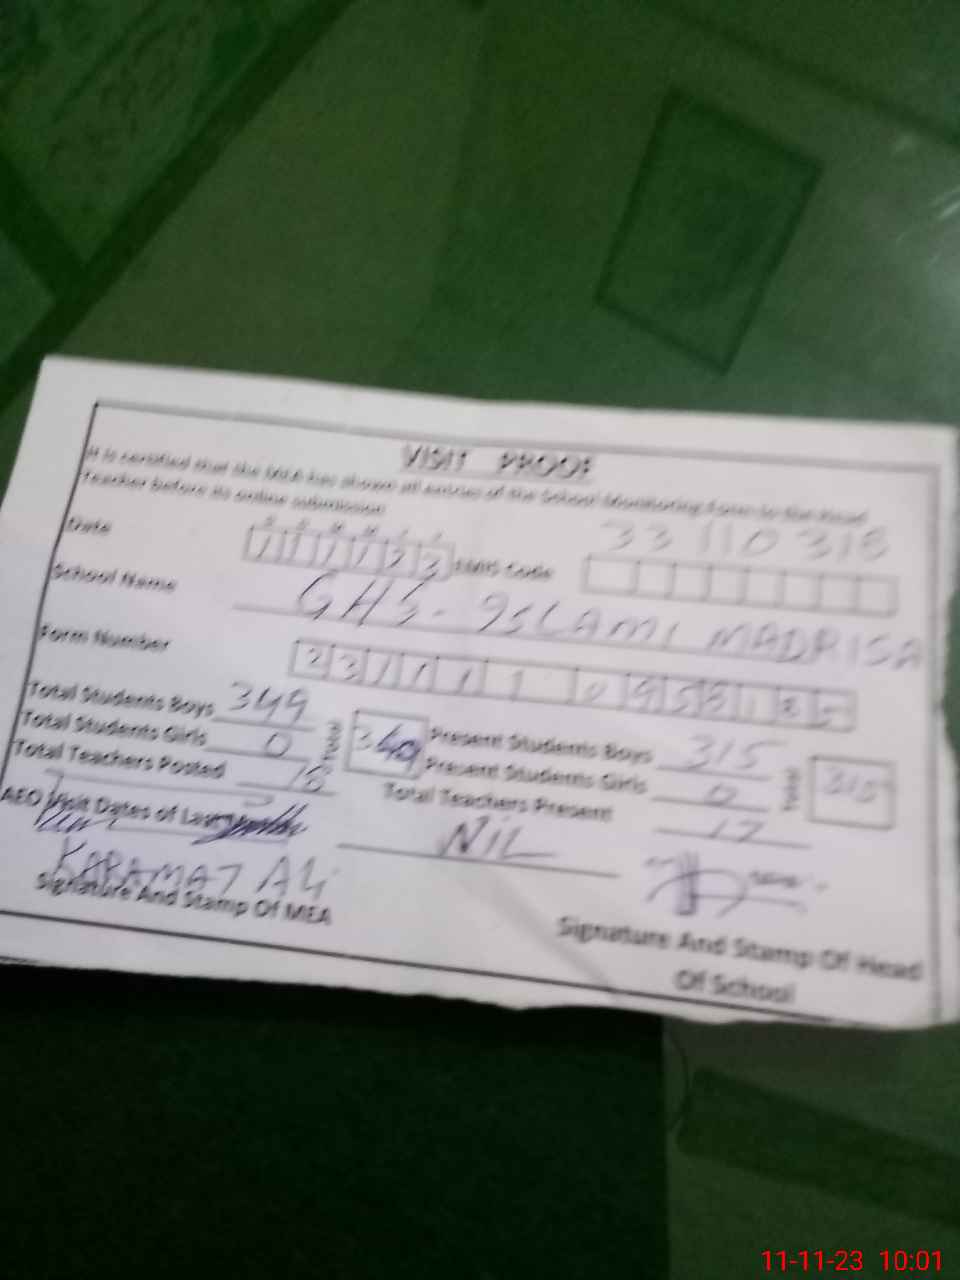 VISIT PROOF
It is certified that the MEA has shown all entries of the School Monitoring Form to the Head
Teacher before its online submission
Date D D M M Y Y 111123 EMIS Code 33110318
School Name GHS - ISLAMI MADRISA
Form Number
Total Students Boys 349 Present Students Boys 315
Total Students Girls 0 Total Present Students Girls 0 Total 315
Total Teachers Posted 18 Total Teachers Present 17
AEO Visit Dates of Last Month NIL
KARAMAT ALI
Signature And Stamp Of MEA
Signature And Stamp Of Head
Of School
11-11-23 10:01